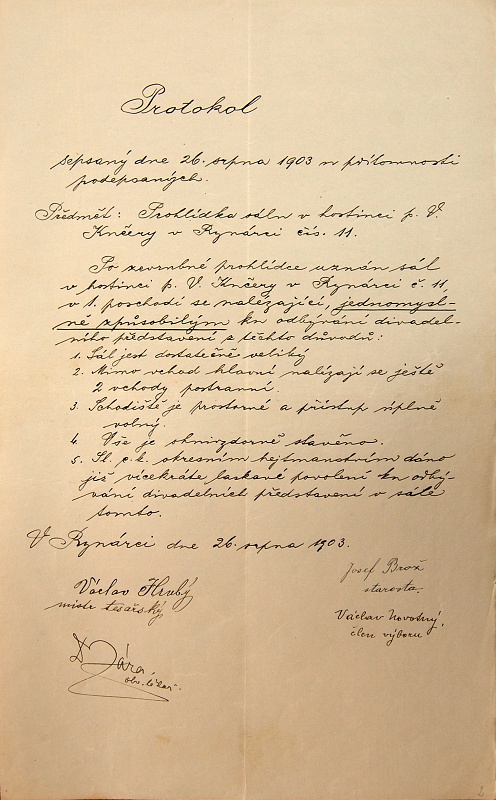 Protokol
sepsaný dne 26. srpna 1903 v přítomnosti
podepsaných.
Předmět: Prohlídka sálu v hostinci p. V.
Kučery v Rynárci čís. 11.
Po zevrubné prohlídce uznán sál
v hostinci p. V. Kučery v Rynárci č. 11,
v 1. poschodí se nalézající, jednomysl-
ně způsobilým ku odbývání divadel-
ního představení z těchto důvodů:
1. Sál jest dostatečně veliký
2. Mimo vchod hlavní nalézají se ještě
2 vchody postranní.
3. Schodiště je prostorné a přístup úplně
volný.
4. Vše je ohnivzdorně stavěno.
5. Sl. c. k. okresním hejtmanstvím dáno
již vícekráte laskavé povolení ku odbý-
vání divadelních představení v sále
tomto.
V Rynárci dne 26. srpna 1903.
Josef Brož
starosta.
Václav Hrubý
mistr tesařský
Václav Novotný,
člen výboru
Dr Zára,
obv. lékař.
2